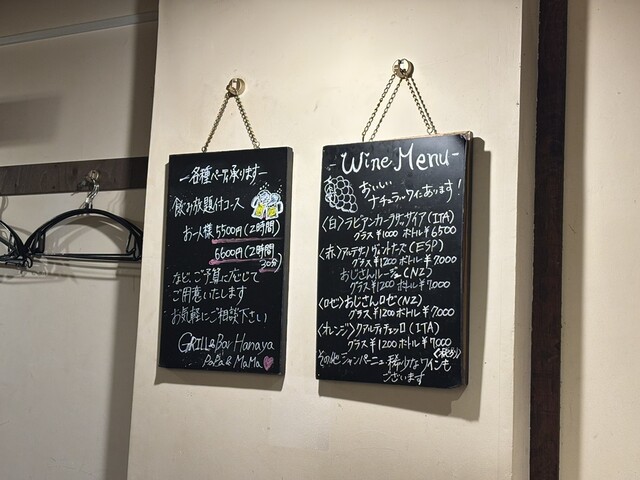 ー各種パーティ承りますー
飲み放題付コース
お一人様 5500円(2時間)
6600円(2時間
30分)
など、ご予算に応じて
ご用意いたします
お気軽にご相談下さい
GRILL&Bar Hanaya
PaPa & MaMa
-Wine Menu-
おいしい
ナチュラルワインあります!
〈白〉ラビアンカーラ(ITA)
グラス¥1000 ボトル¥6500
〈赤〉(ESP)
グラス¥1200 ボトル¥7000
おじさんルージュ(NZ)
グラス¥1200 ボトル¥7000
〈ロゼ〉おじさんロゼ(NZ)
グラス¥1200 ボトル¥7000
〈オレンジ〉(ITA)
グラス¥1200 ボトル¥7000
その他シャンパーニュ 稀少なワインも
ございます